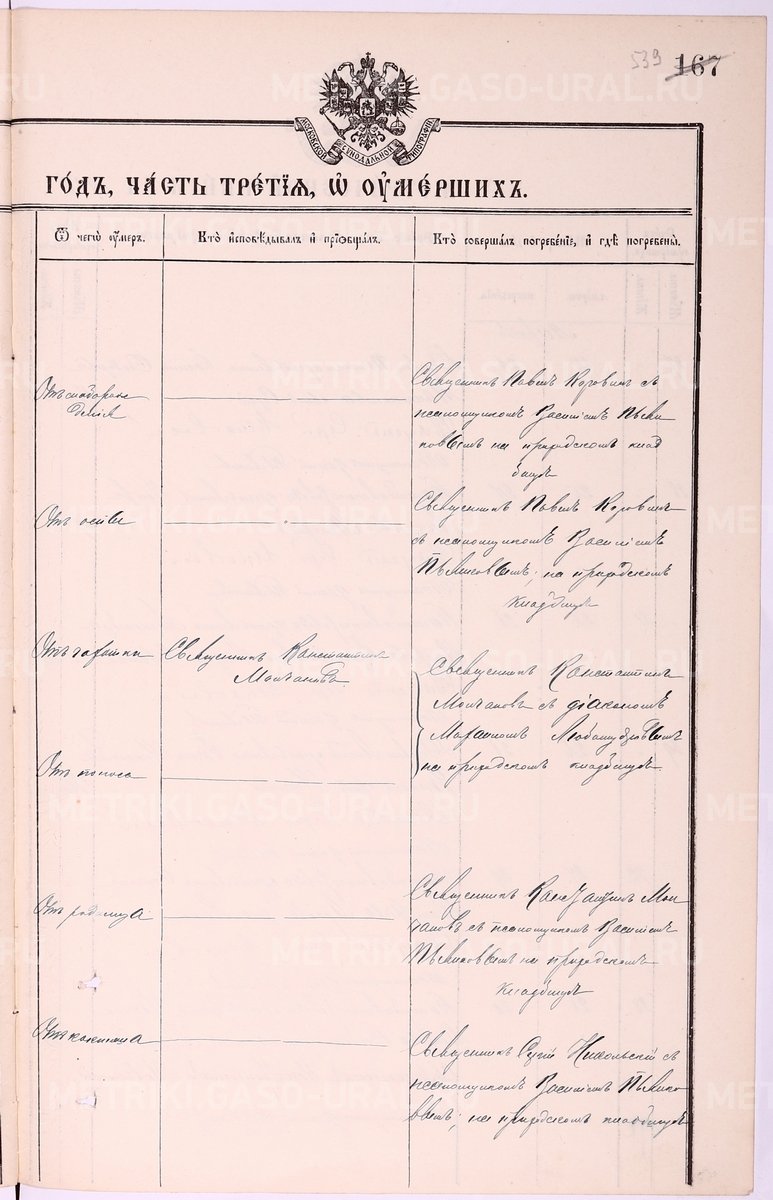 539 167
МОСКОВСКОЙ СѴНОДАЛЬНОЙ ТИПОГРАФІИ
ГОДЪ, ЧАСТЬ ТРЕТІЯ, Ѡ ОУМЕРШИХЪ.
Ѿ чегѡ оумеръ.
Кто исповѣдывалъ и прїѡбщалъ.
Кто совершалъ погребенїе, и гдѣ погребены.
Отъ слаборож
денія
Священникъ Павелъ Коровинъ съ
псаломщикомъ Василіемъ Пьянко
вымъ на приходскомъ клад
бищѣ
Отъ оспы
Священникъ Павелъ Коровинъ
съ псаломщикомъ Василіемъ
на приходскомъ
кладбищѣ
Отъ чахотки
Священникъ Константинъ
Молчановъ
Священникъ Константинъ
Молчановъ съ діакономъ
Любомудровымъ
на приходскомъ кладбищѣ
Отъ поноса
Отъ родимца
Священникъ Константинъ Мол
чановъ съ псаломщикомъ Василіемъ
на приходскомъ
кладбищѣ
Отъ коклюша
Священникъ Сергій Никольскій съ
псаломщикомъ Василіемъ
на приходскомъ кладбищѣ
METRIKI.GASO-URAL.RU